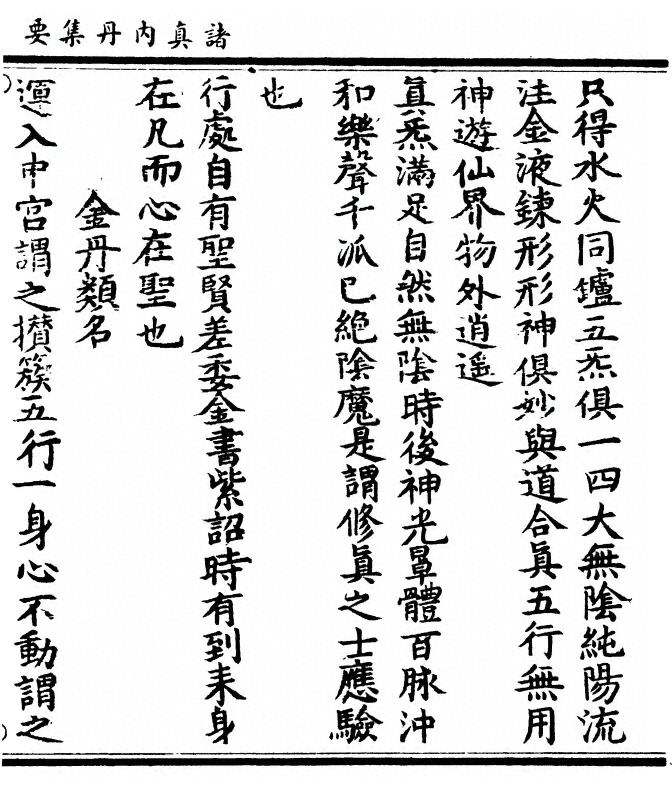 諸真內丹集要
只得水火同鑪五炁俱一四大無陰純陽流
注金液鍊形形神俱妙與道合眞五行無用
神遊仙界物外逍遥
眞炁滿足自然無陰時後神光罩體百脉沖
和樂聲千派已絶陰魔是謂修眞之士應驗
也
行處自有聖賢差委金書紫詔時有到来身
在凡而心在聖也
金丹類名
運入中宮謂之攅簇五行一身心不動謂之